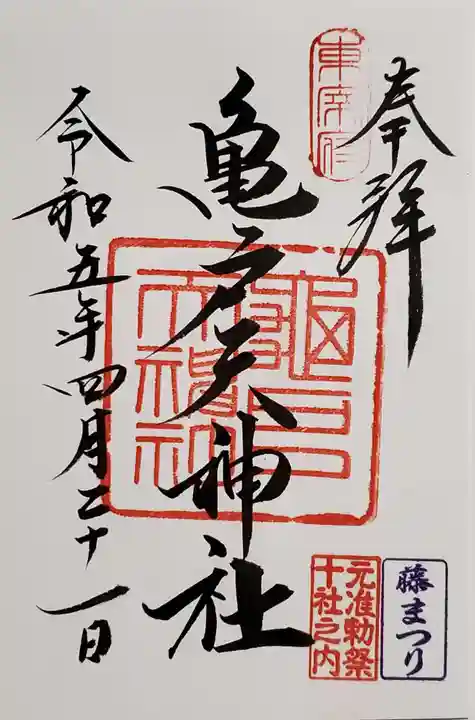 奉拝
東宰府
亀戸天神社
亀戸天神社
令和五年四月二十一日
藤まつり
元准勅祭
十社之内